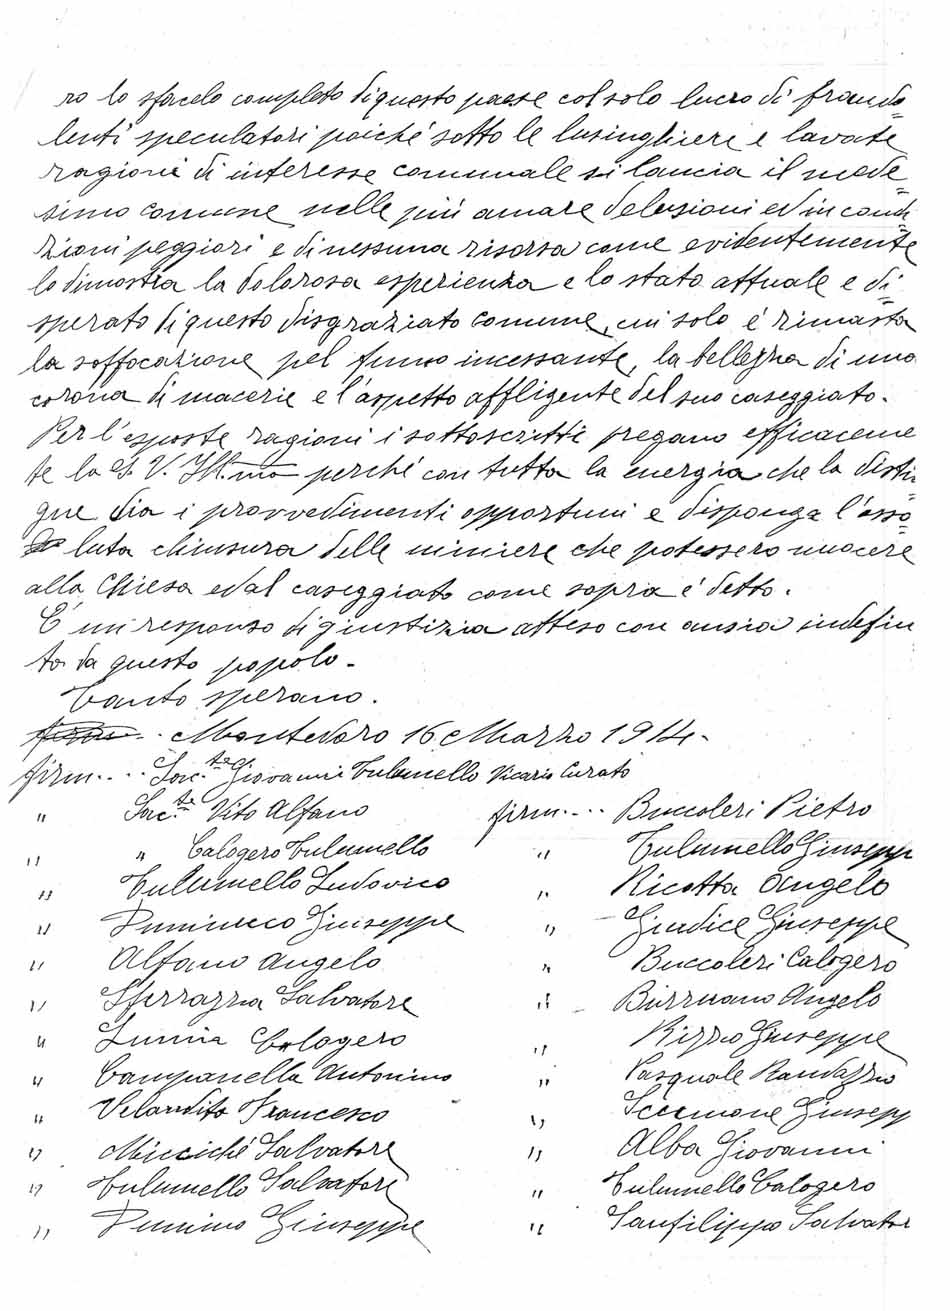 ro lo sfacelo completo di questo paese col solo lucro di fraudo=
lenti speculatori poiché sotto le lusinghiere e lavate
ragioni di interesse comunale si lancia il mede=
simo comune nelle più amare delusioni ed in condi=
zioni peggiori e di nessuna risorsa come evidentemente
lo dimostra la dolorosa esperienza e lo stato attuale e di=
sperato di questo disgraziato comune, cui solo é rimasta
la soffocazione pel fumo incessante, la bellezza di una
corona di macerie e l'aspetto affligente del suo caseggiato.
Per l'esposte ragioni i sottoscritti pregano efficaceme
te la S. V. Ill.ma perché con tutta la energia che la disti=
gue dia i provvedimenti opportuni e disponga l'asso=
luta chiusura delle miniere che potessero nuocere
alla Chiesa ed al caseggiato come sopra é detto.
É un responso di giustizia atteso con ansia indefini
to da questo popolo.
Tanto sperano.
firm... Montedoro 16 Marzo 1914.
firm.... Sac.te Giovanni Tulumello Vicario Curato
" Sac.te Vito Alfano firm.... Buccoleri Pietro
" " Calogero Tulumello " Tulumello Giusepp
" Tulumello Ludovico " Ricotta Angelo
" Giuseppe " Giudice Giuseppe
" Alfano Angelo " Buccoleri Calogero
" Sferrazza Salvatore " Angelo
" Lumia Calogero " Rizzo Giuseppe
" Campanella Antonino " Pasquale Randazzo
" Francesco " Giusepp
" Miccichè Salvatore " Alba Giovanni
" Tulumello Salvatore " Tulumello Calogero
" Giuseppe " Sanfilippo Salvator